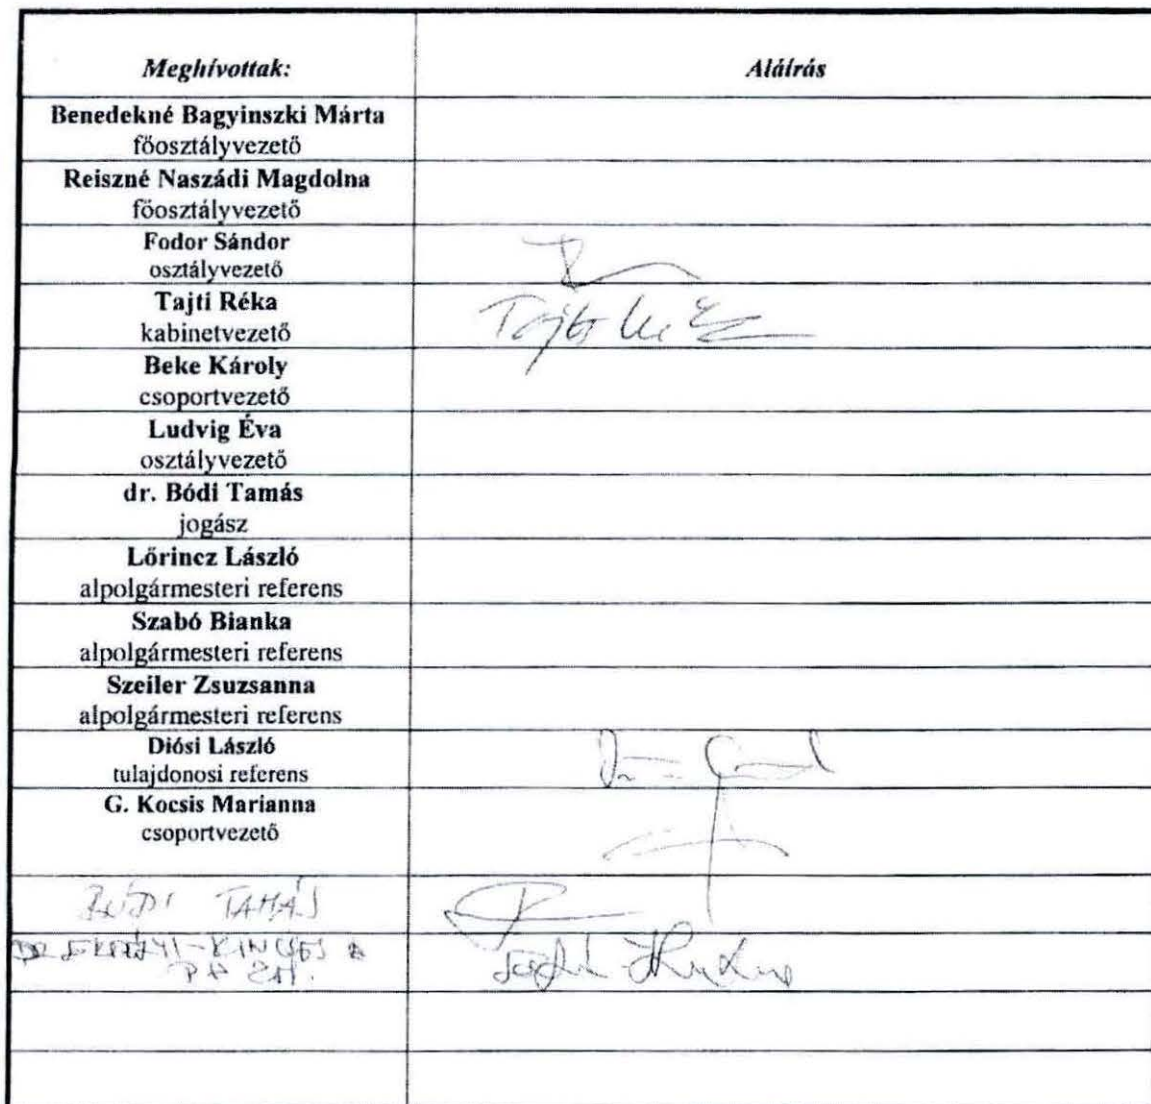 Meghívottak: Aláírás
Benedekné Bagyinszki Márta
főosztályvezető
Reiszné Naszádi Magdolna
főosztályvezető
Fodor Sándor
osztályvezető
Tajti Réka
kabinetvezető
Beke Károly
csoportvezető
Ludvig Éva
osztályvezető
dr. Bódi Tamás
jogász
Lőrincz László
alpolgármesteri referens
Szabó Bianka
alpolgármesteri referens
Szeiler Zsuzsanna
alpolgármesteri referens
Diósi László
tulajdonosi referens
G. Kocsis Marianna
csoportvezető
BÓDI TAMÁS